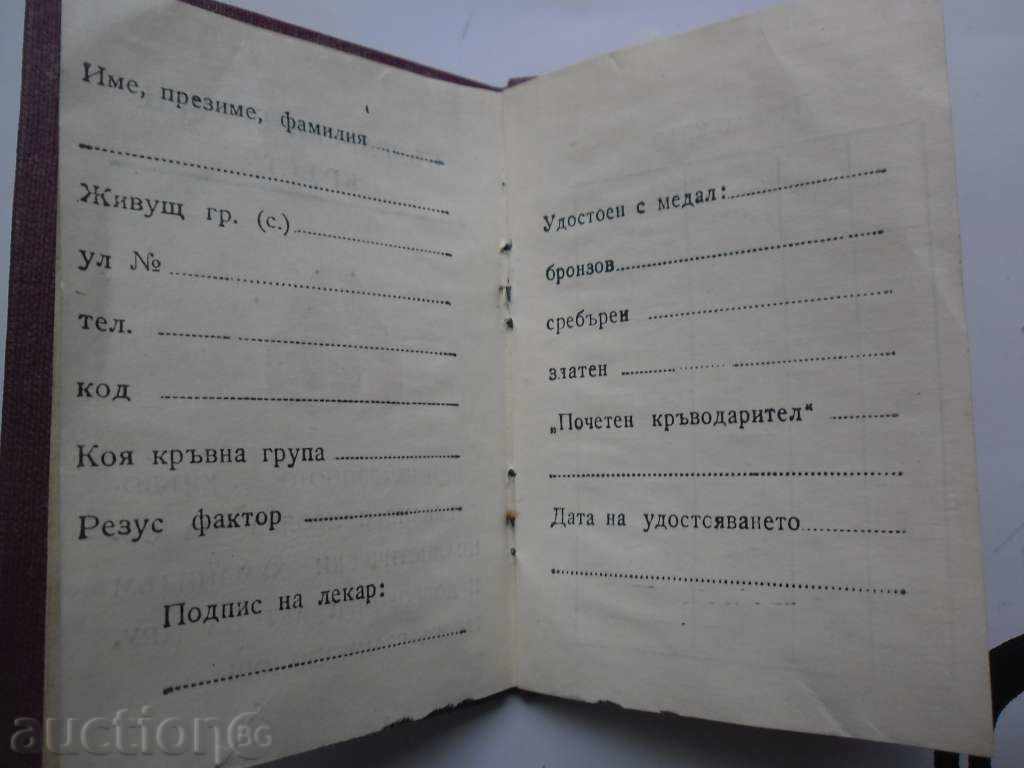 Име, презиме, фамилия
Живущ гр. (с.)
ул №
тел.
код
Коя кръвна група
Резус фактор
Подпис на лекар:
Удостоен с медал:
бронзов
сребърен
златен
„Почетен кръводарител“
Дата на удостсяването
auction BG